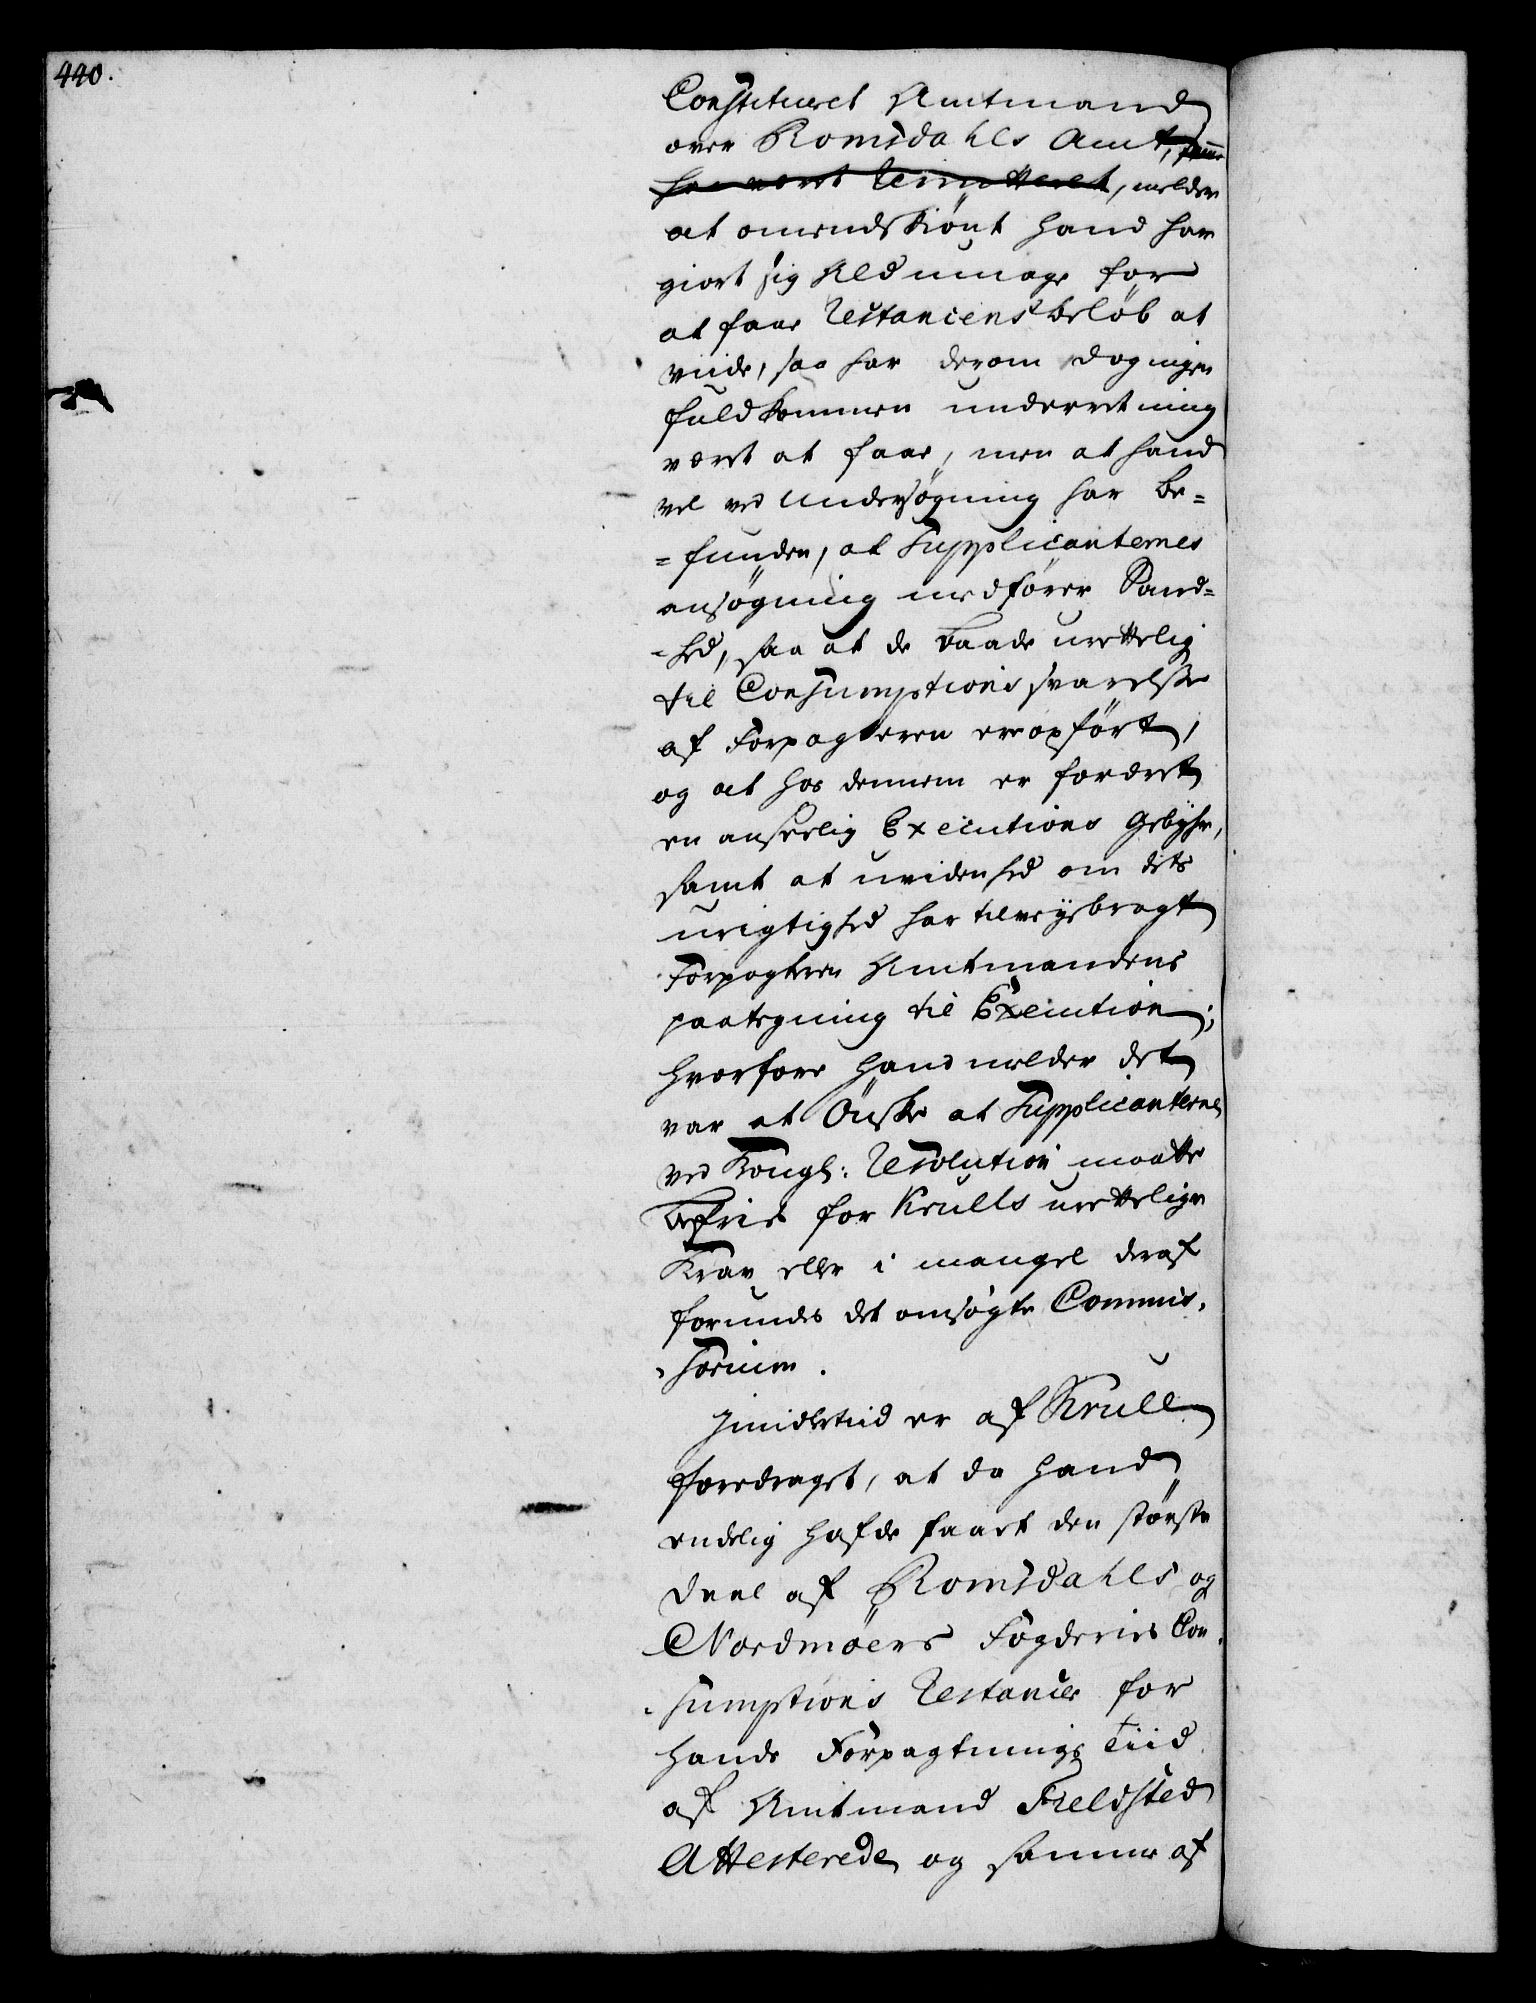 440.
Constitueret Amtmand
over Romsdahls Amt,
har været remitteret, melder
at omendskiønt hand har
giort sig All umage for
at faae Restancens beløb at
viide, saa har derom dog ingen
fuldkommen underretning
været at faae, men at hand
vel ved Undersøgning har be=
=funden, at Supplicanternes
ansøgning medfører Sand=
=hed, saa at de baade urettelig
til Consumptions svarelse
af Forpagteren ere opført,
og at hos dennem er fordret
en anseelig Executions Gebyhr,
samt at uvidenhed om dets
urigtighed har tilveyebragt
Forpagteren Amtmandens
paategning til Execution;
hvorfore hand melder det
var at Ønske at Supplicanterne
ved Kongl: Resolution maatte
befries for Krulls urettelige
Krav eller i mangel deraf
forundes det ansøgte Commis-
-sorium.
Jmidlertiid er af Krull
foredraget, at da hand
endelig hafde faaet den største
Deel af Romsdahls og
Nordmøers Fogderies Con-
-sumptions Restance for
hands Forpagtnings Tiid
af Amtmand Fieldsted
Attesterede og samme af